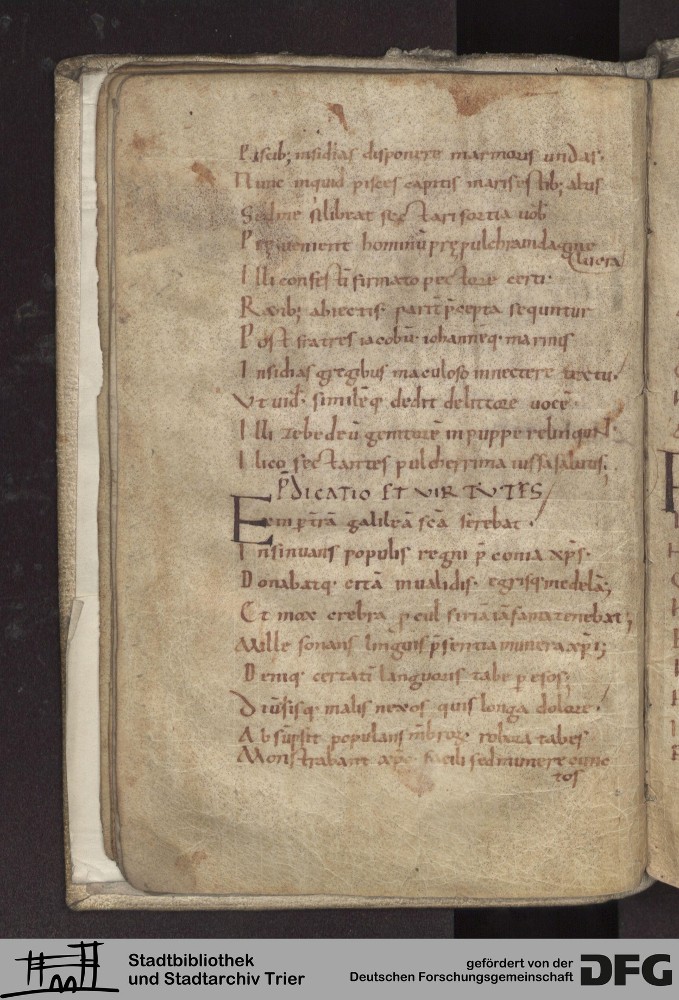 Piscib; insidias disponere marmoris undas·
Nunc inquid pisces capitis maris estib; altis
Sed me si libeat sectari fortia uob̄
Peruenient hominū prępulchra indagine
lucra
Illi confestī firmato pectore certi·
Raetib; abiectis· pariť p̄cepta sequntur
Post fratres iacobū· iohannēq· marinis
Insidias gregibus maculoso innectere textu·
Vt uid̄· similēq· dedit de littore uocē·
Illi zebedeū genitorē in puppe relinqunt·
Ilico sectantes pulcherrima iussa salutis;
P̄DICATIO ET VIRTVTES
E om̄ p̄ trā galileā scā serebat·
Insinuans populis regni p̄conia xp̄s·
Donabatq· citā inualidis· egrisq· medelā;
Et mox crebra p̄cul siriā iā fama tenebat;
Mille sonans linguis p̄sentia munera xp̄i;
Deniq· certatī languoris tabe peresos;
Diuersisq· malis nexos quis longa dolore·
Absūpsit populans mēbrorū robora tabes
Monstrabant xp̄o facili sed munere cunc
tos
Stadtbibliothek
und Stadtarchiv Trier
gefördert von der
Deutschen Forschungsgemeinschaft
DFG